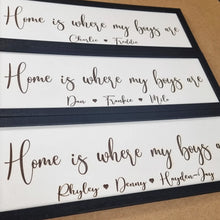 Home is where my boys are
Charlie ♥ Freddie
Home is where my boys are
Dan ♥ Frankie ♥ Milo
Home is where my boys are
Rhyley ♥ Denny ♥ Hayden-Jay